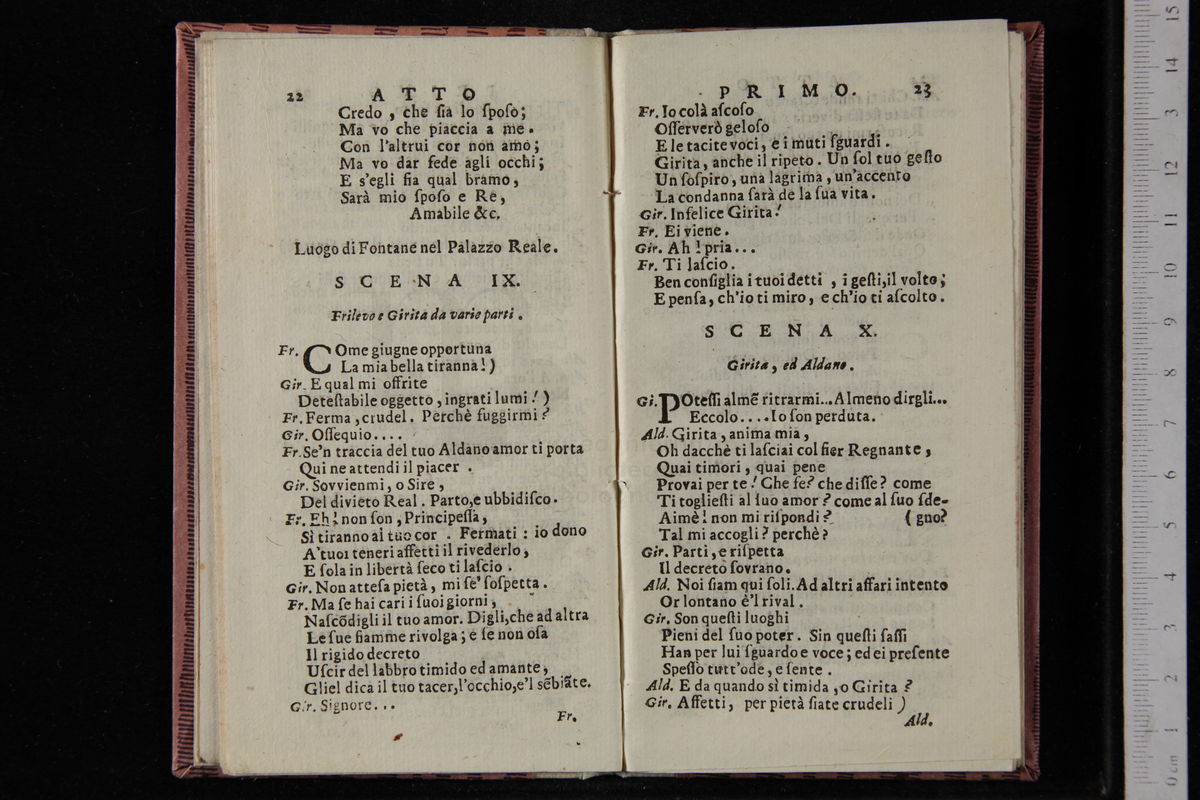 22 ATTO
Credo , che ſia lo ſpoſo;
Ma vo che piaccia a me.
Con l'altrui cor non amo;
Ma vo dar fede agli occhi;
E s'egli ſia qual bramo,
Sarà mio ſpoſo e Re,
Amabile &c.
Luogo di Fontane nel Palazzo Reale.
SCENA IX.
Frilevo e Girita da varie parti.
Fr. COme giugne opportuna
La mia bella tiranna!)
Gir. E qual mi offrite
Deteſtabile oggetto, ingrati lumi!)
Fr. Ferma, crudel. Perchè fuggirmi?
Gir. Oſſequio....
Fr. Se'n traccia del tuo Aldano amor ti porta
Qui ne attendi il piacer.
Gir. Sovvienmi, o Sire,
Del divieto Real. Parto,e ubbidiſco.
Fr. Eh! non ſon, Principeſſa,
Sì tiranno al tuo cor. Fermati: io dono
A'tuoi teneri affetti il rivederlo,
E ſola in libertà ſeco ti laſcio.
Gir. Non atteſa pietà, mi ſe' ſoſpetta.
Fr. Ma ſe hai cari i ſuoi giorni,
Naſcõdigli il tuo amor. Digli,che ad altra
Le ſue fiamme rivolga; e ſe non oſa
Il rigido decreto
Uſcir del labbro timido ed amante,
Gliel dica il tuo tacer,l'occhio,e'l sẽbiãte.
Gir. Signore...
Fr.
PRIMO. 23
Fr. Io colà aſcoſo
Oſſerverò geloſo
E le tacite voci, e i muti ſguardi.
Girita, anche il ripeto. Un ſol tuo geſto
Un ſoſpiro, una lagrima, un'accento
La condanna ſarà de la ſua vita.
Gir. Infelice Girita!
Fr. Ei viene.
Gir. Ah! pria...
Fr. Ti laſcio.
Ben conſiglia i tuoi detti, i geſti,il volto;
E penſa, ch'io ti miro, e ch'io ti aſcolto.
SCENA X.
Girita, ed Aldano.
Gi. POteſſi almẽ ritrarmi...Almeno dirgli...
Eccolo....Io ſon perduta.
Ald. Girita, anima mia,
Oh dacchè ti laſciai col fier Regnante,
Quai timori, quai pene
Provai per te! Che fe? che diſſe? come
Ti toglieſti al ſuo amor? come al ſuo ſde-
Aimè! non mi riſpondi? (gno?
Tal mi accogli? perchè?
Gir. Parti, e riſpetta
Il decreto ſovrano.
Ald. Noi ſiam qui ſoli. Ad altri affari intento
Or lontano è'l rival.
Gir. Son queſti luoghi
Pieni del ſuo poter. Sin queſti ſaſſi
Han per lui ſguardo e voce; ed ei preſente
Speſſo tutt'ode, e ſente.
Ald. E da quando sì timida, o Girita?
Gir. Affetti, per pietà ſiate crudeli)
Ald.